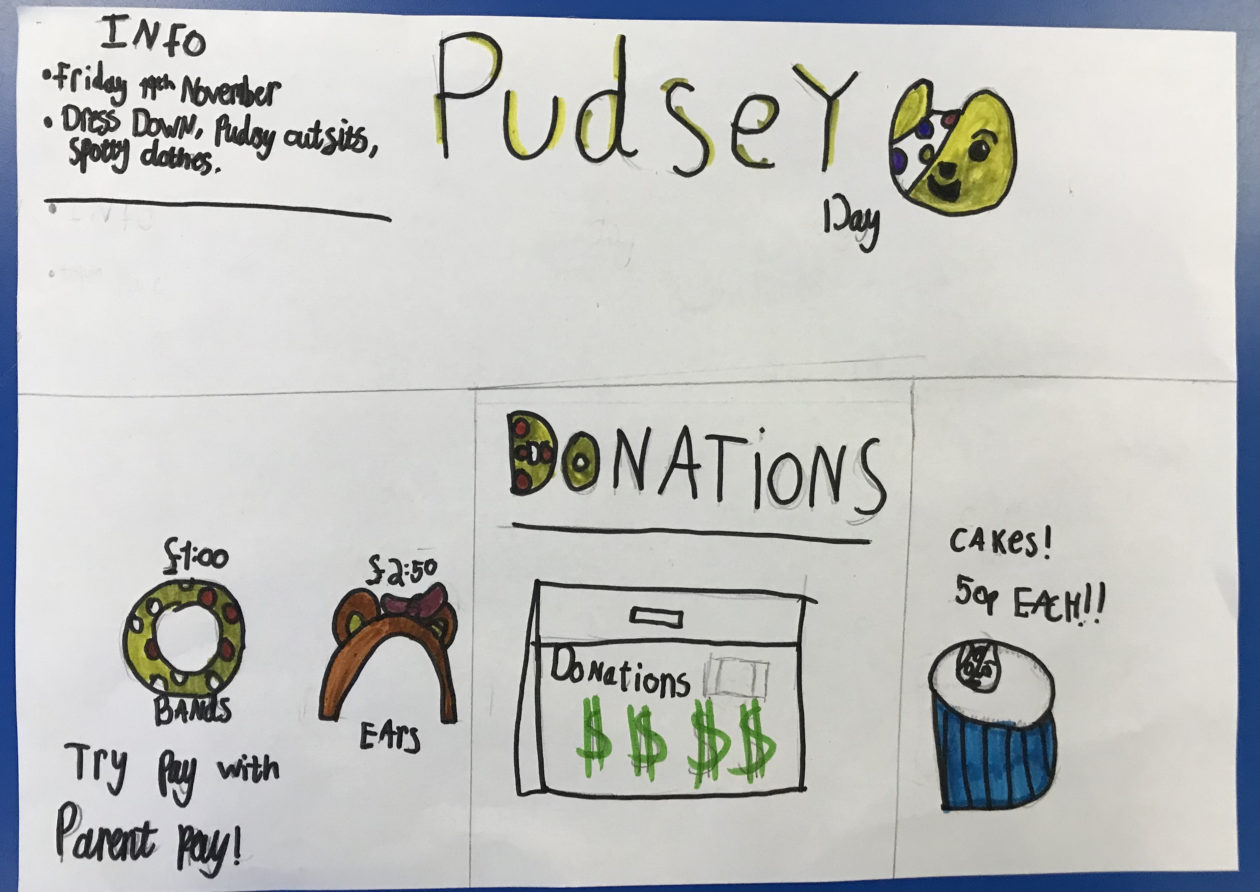 INFO
• Friday 19th November
• DRESS DOWN, Pudsy outsits,
spotty clothes.
PudseY
Day
DONATiONS
£1:00
BANdS
£2:50
EArs
Try pay with
Parent pay!
DoNations
$ $ $ $
CAKes!
50p EACH!!